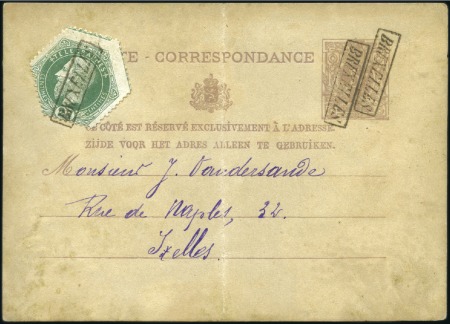 TE - CORRESPONDANCE
BRUXELLES
BRUXELLES
BRUXELLES
CE CÔTÉ EST RÉSERVÉ EXCLUSIVEMENT À L'ADRESSE.
ZIJDE VOOR HET ADRES ALLEEN TE GEBRUIKEN.
Monsieur J. Vandersande
Rue de Naples, 32.
Ixelles.